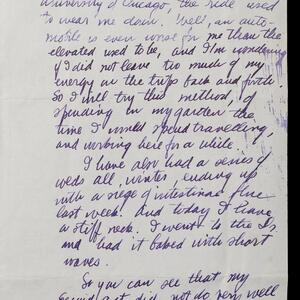 University of Chicago, the ride used
to wear me down. Well, an auto-
mobile is even worse for me than the
elevated used to be, and I'm wondering
if I did not leave too much of my
energy on the trips back and forth.
So I will try this method, of
spending in my garden the
time I would spend travelling,
and working here for a while.
I have also had a series of
colds all winter ending up
with a siege of intestinal flue
last week. And today I have
a stiff neck. I went to the Dr
and had it baked with short
waves.
So you can see that my
did not do very well